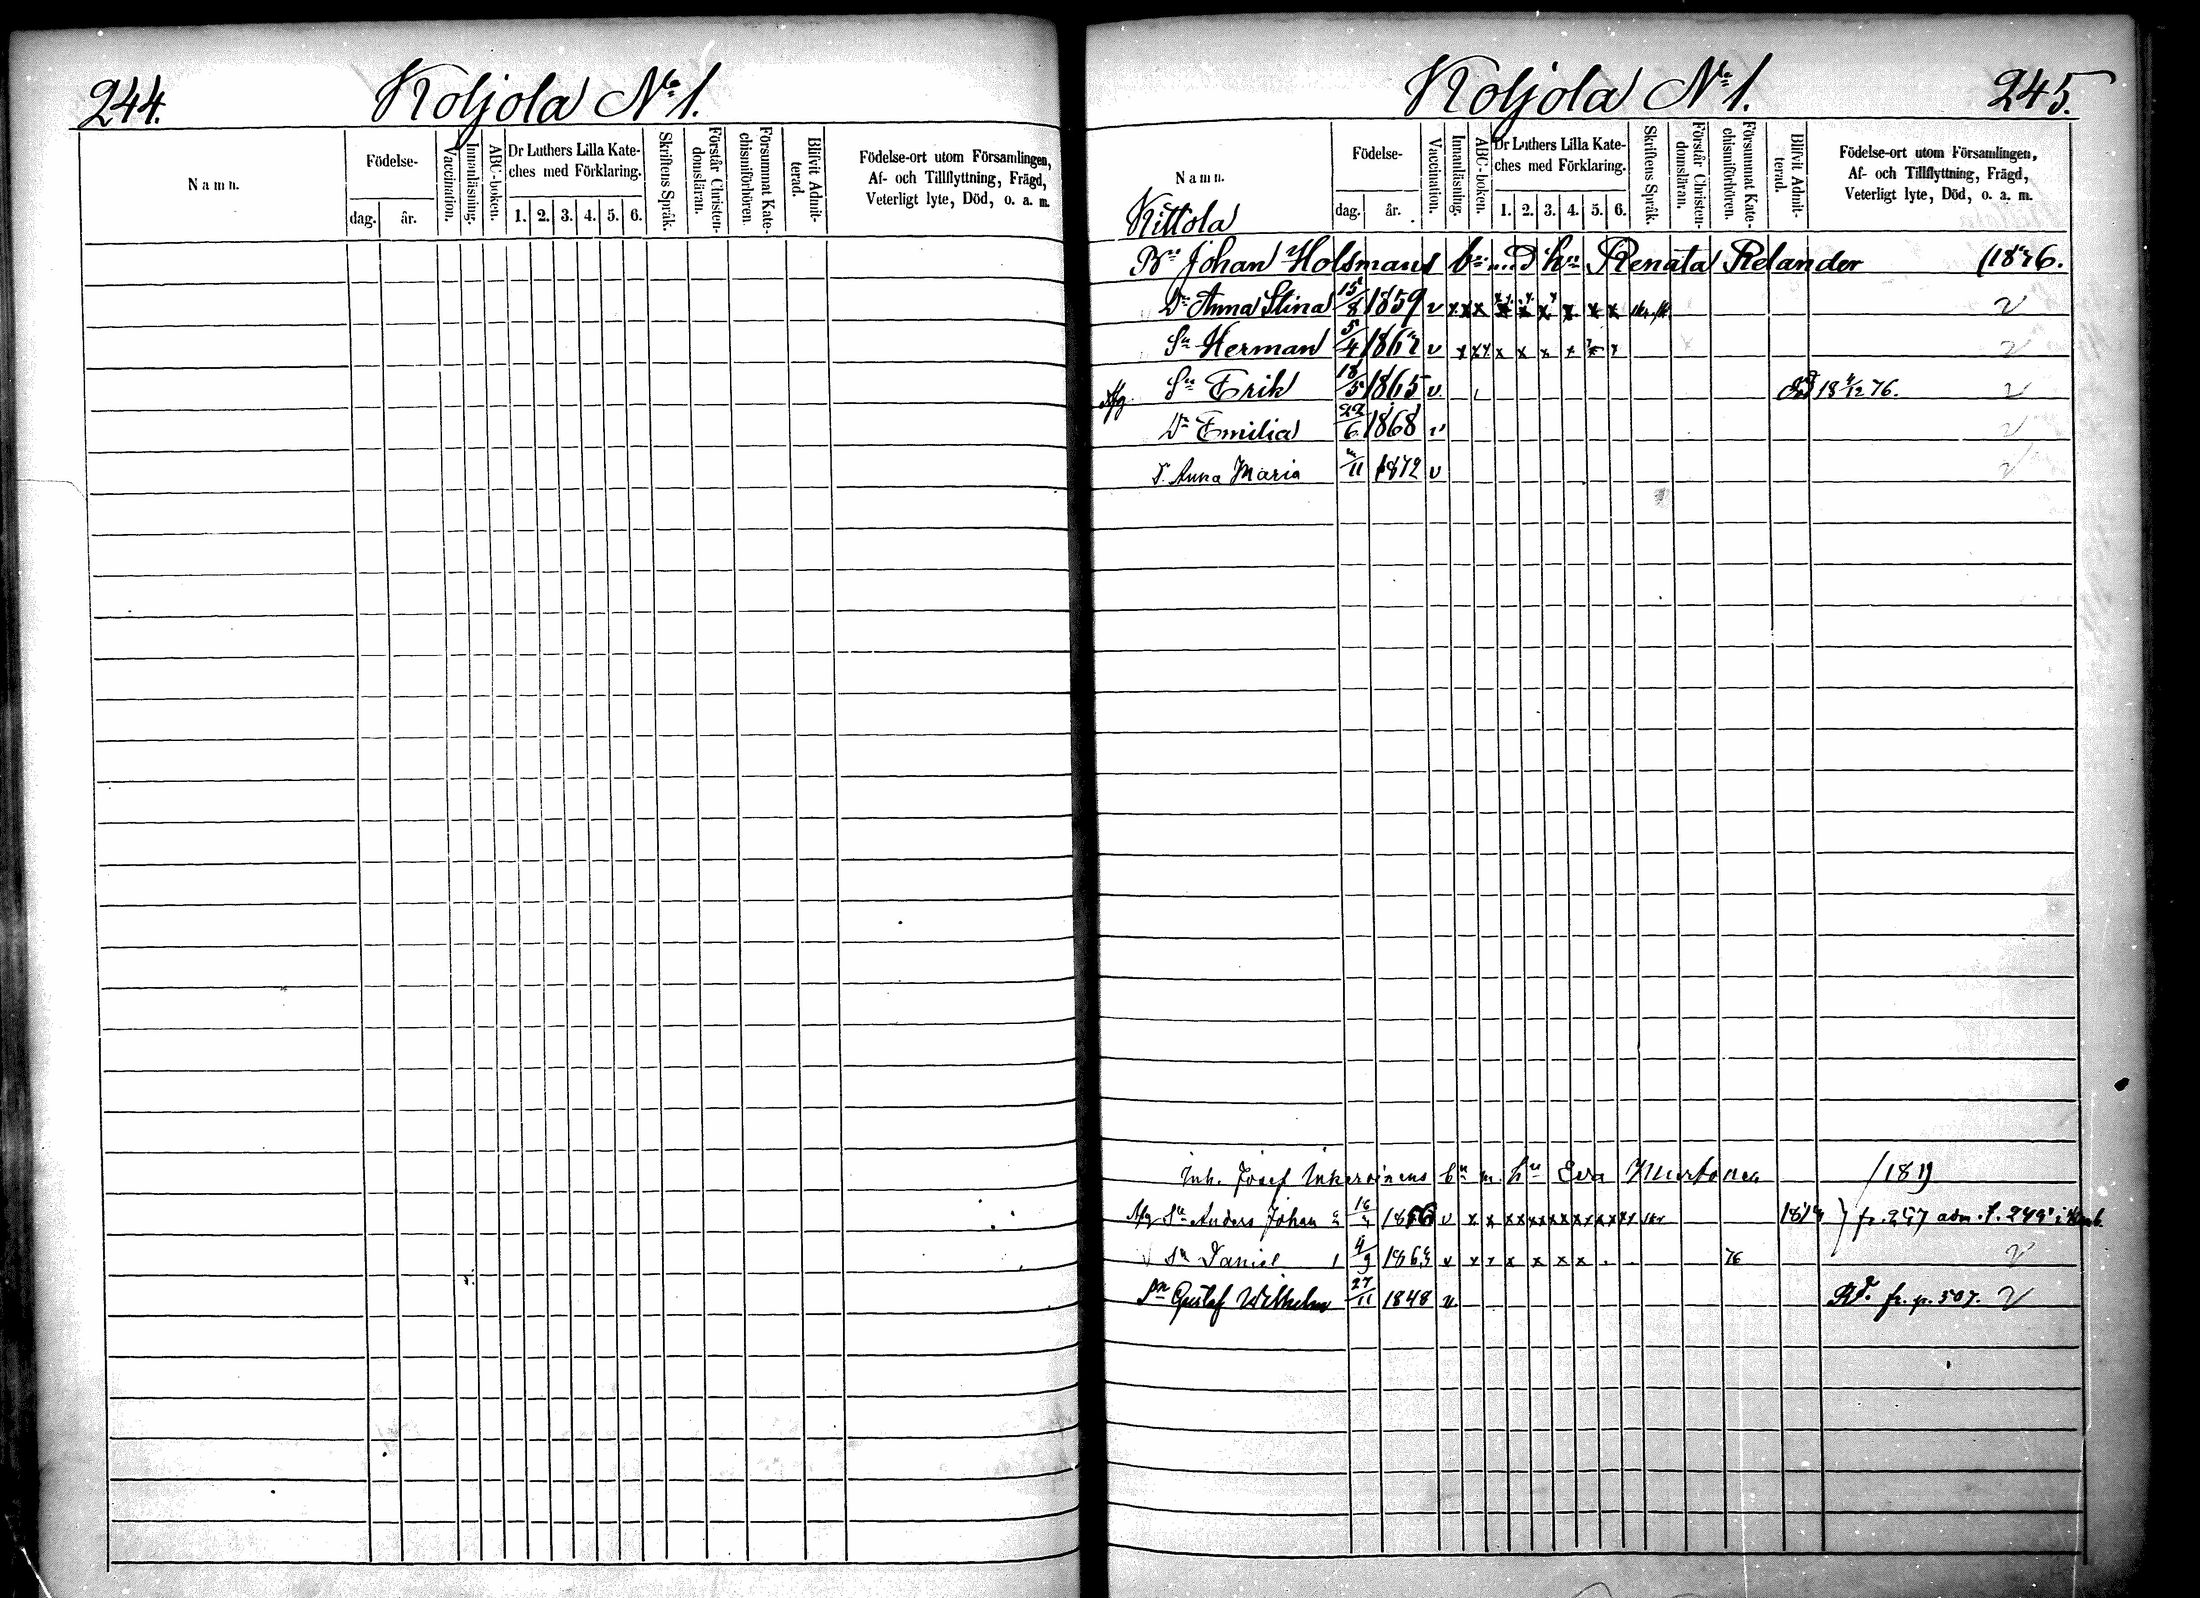 244.
Koljola No 1.
Namn.
Födelse-
dag.
år.
Vaccination.
Innanläsning.
ABC-boken.
Dr Luthers Lilla Kate-
ches med Förklaring.
1. 2. 3. 4. 5. 6.
Skriftens Språk.
Förstår Christen-
domsläran.
Försummat Kate-
chismiförhören.
Blifvit Admit-
terad.
Födelse-ort utom Församlingen,
Af- och Tillflyttning, Frägd,
Veterligt lyte, Död, o. a. m.
Koljola No 1.
245.
Namn.
Kittola
Födelse-
dag.
år.
Vaccination.
Innanläsning.
ABC-boken.
Dr Luthers Lilla Kate-
ches med Förklaring.
1. 2. 3. 4. 5. 6.
Skriftens Språk.
Förstår Christen-
domsläran.
Försummat Kate-
chismiförhören.
Blifvit Admit-
terad.
Födelse-ort utom Församlingen,
Af- och Tillflyttning, Frägd,
Veterligt lyte, Död, o. a. m.
Johan Holsmans bn hn Renata Relander
Dr Anna Stina 15/8 1859 v x x x x x x x x x v
Sn Herman 5/4 v x x x x x x x x v
Sn Erik 18/5 1865 v 76. v
Dr Emilia 22/6 1868 v v
D. Anna Maria 11 1872 v v
Inh. Josef Inkeroinens bn m hn Eva
Afg Sn Anders Johan 16 v x x x x x x x x x x fr.
Sn Daniel 9 v x x x x x x 76 v
Sn Gustaf Wilhelm 27/11 1848 v fr. p. 507. v